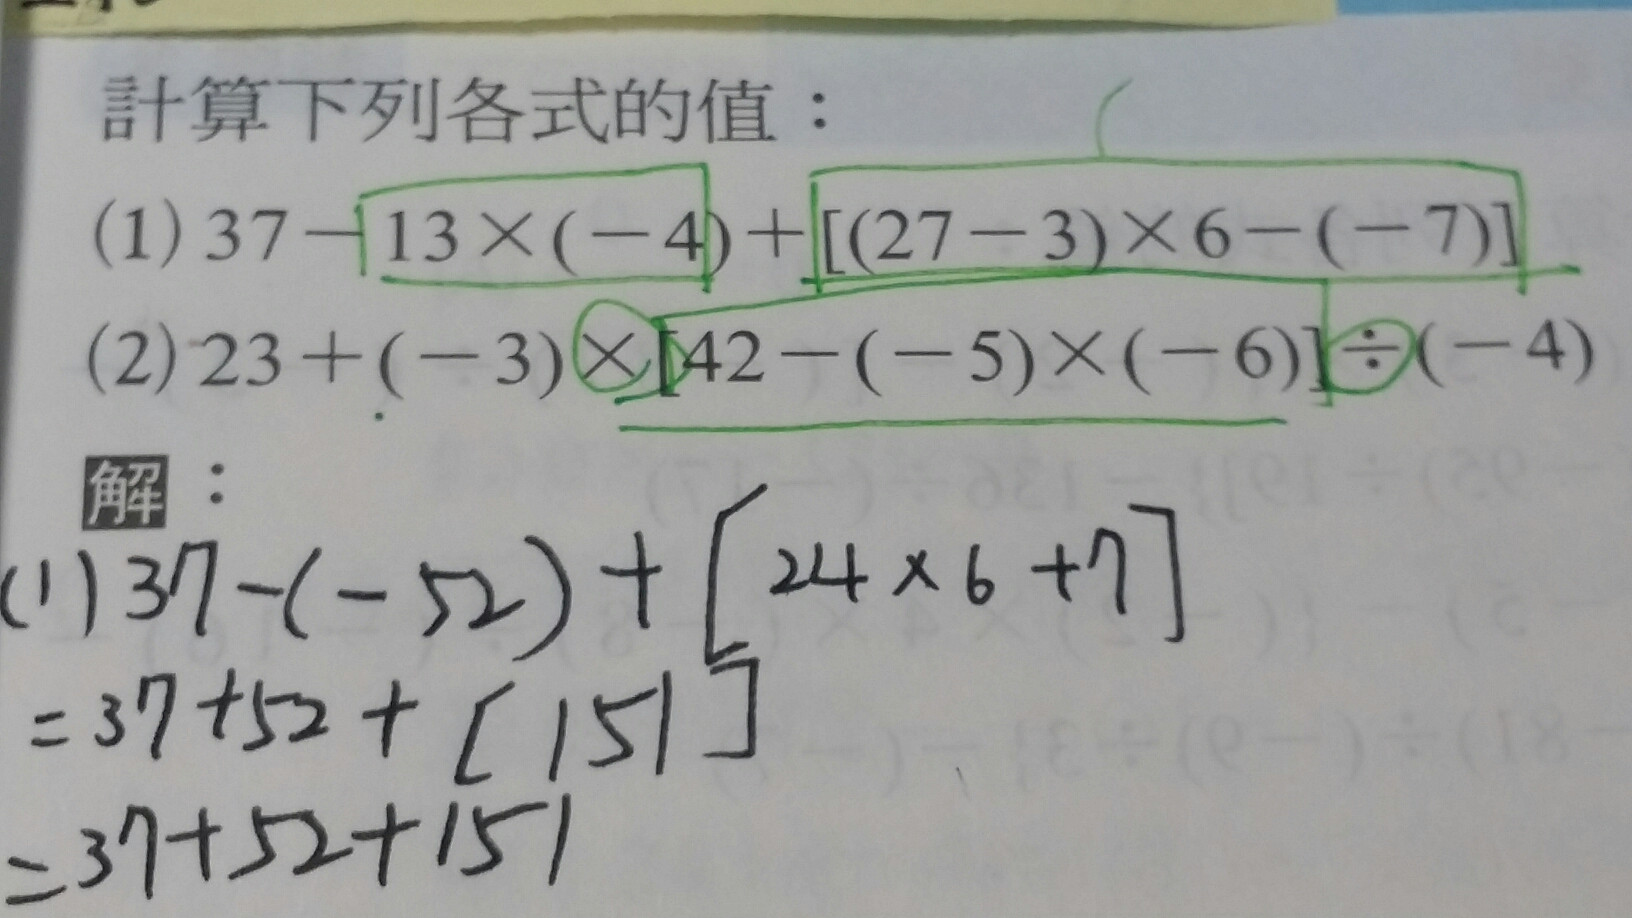 計算下列各式的值：
(1) 37－13×(－4)＋[(27－3)×6－(－7)]
(2) 23＋(－3)×[42－(－5)×(－6)]÷(－4)
解：
(1) 37-(-52)+[24×6+7]
=37+52+[151]
=37+52+151